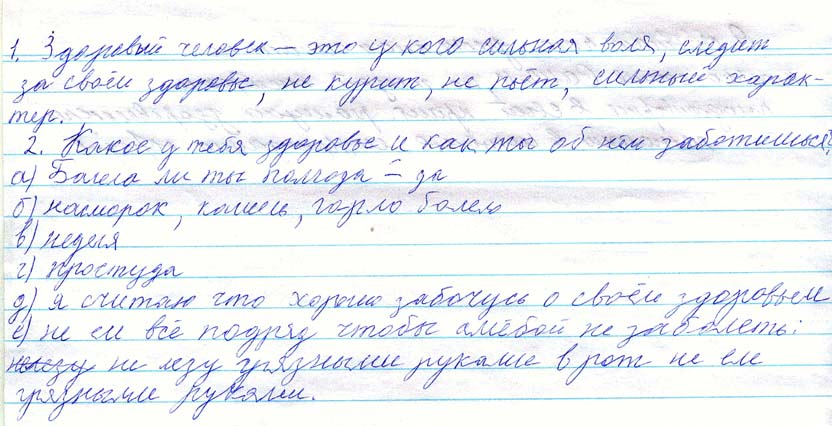 1. Здоровый человек – это у кого сильная воля, следит
за своём здоровье, не курит, не пьёт, сильный харак-
тер.
2. Какое у тебя здоровье и как ты об нём заботишься?
а) Болела ли ты полгода – да
б) насморок, кашель, горло болело
в) неделя
г) простуда
д) я считаю что хорошо забочусь о своём здоровьем
е) не ем всё подряд чтобы амёбой не заболеть;
не лезу грязными руками в рот не ем
грязными руками.